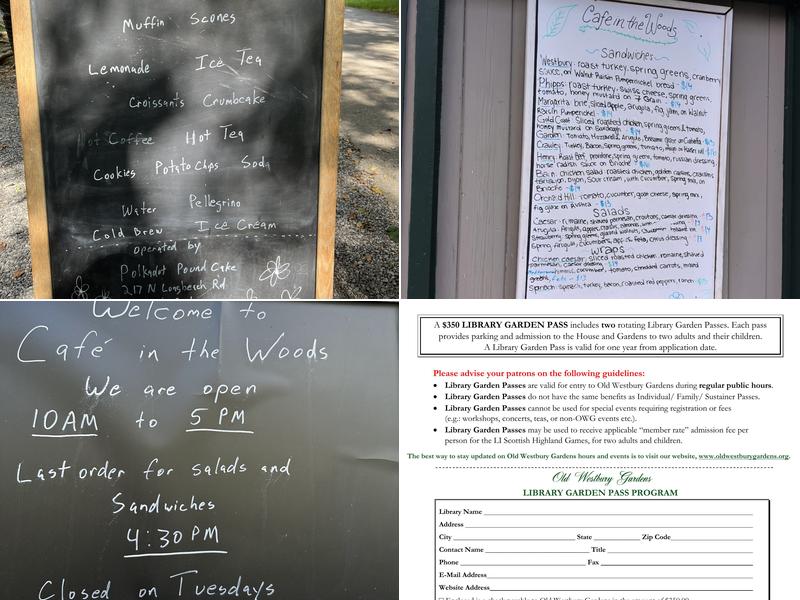 Muffin Scones
Lemonade Ice Tea
Croissants Crumbcake
Hot Coffee Hot Tea
Cookies Potato Chips Soda
Water Pellegrino
Cold Brew Ice Cream
operated by
Polkadot Pound Cake
217 N Longbeach Rd
Cafe in the Woods
Sandwiches
Westbury: roast turkey, spring greens, cranberry
sauce, on Walnut Raisin Pumpernickel bread - $14
Phipps: roast turkey, swiss cheese, spring greens,
tomato, honey mustard on 7 Grain - $14
Margarita: brie, sliced apple, arugula, fig jam, on Walnut
Raisin Pumpernickel - $14
Gold Coast: Sliced roasted chicken, spring greens, tomato,
honey mustard on
Garden: Tomato, Mozzarella, Arugula, Balsamic glaze on Ciabatta
Crawley: Turkey, Bacon, Spring greens, tomato, mayo on
Henry: Roast Beef, provolone, spring greens, tomato, russian dressing,
horse radish sauce on Brioche
chicken salad roasted chicken, golden raisins,
Dijon, Sour cream, with Cucumber, Spring mix, on
Brioche - $14
Orchard Hill: tomato, cucumber, goat cheese, spring mix,
fig glaze on - $13
Salads
Caesar: romaine, shaved parmesan, croutons, caesar dressing - $13
Spring, Arugula, cucumbers, citrus dressing
Wraps
Chicken caesar: sliced roasted chicken, romaine, shaved
parmesan, caesar dressing - $14
cucumber, tomato, shredded carrots, mixed
greens, feta - $13
Spinach: spinach, turkey, bacon, roasted red peppers, ranch
Welcome to
Café in the Woods
We are open
10AM to 5 PM
Last order for salads and
Sandwiches
4:30 PM
Closed on Tuesdays
A $350 LIBRARY GARDEN PASS includes two rotating Library Garden Passes. Each pass
provides parking and admission to the House and Gardens to two adults and their children.
A Library Garden Pass is valid for one year from application date.
Please advise your patrons on the following guidelines:
• Library Garden Passes are valid for entry to Old Westbury Gardens during regular public hours.
• Library Garden Passes do not have the same benefits as Individual/ Family/ Sustainer Passes.
• Library Garden Passes cannot be used for special events requiring registration or fees
(e.g.: workshops, concerts, teas, or non-OWG events etc.).
• Library Garden Passes may be used to receive applicable "member rate" admission fee per
person for the LI Scottish Highland Games, for two adults and children.
The best way to stay updated on Old Westbury Gardens hours and events is to visit our website, www.oldwestburygardens.org.
Old Westbury Gardens
LIBRARY GARDEN PASS PROGRAM
Library Name
Address
City State Zip Code
Contact Name Title
Phone Fax
E-Mail Address
Website Address